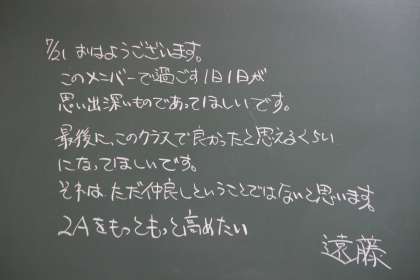 7/21 おはようございます。
このメンバーで過ごす1日1日が
思い出深いものであってほしいです。
最後に、このクラスで良かったと思えるくらい
になってほしいです。
それは ただ仲良しということではないと思います。
2Aをもっともっと高めたい
遠藤